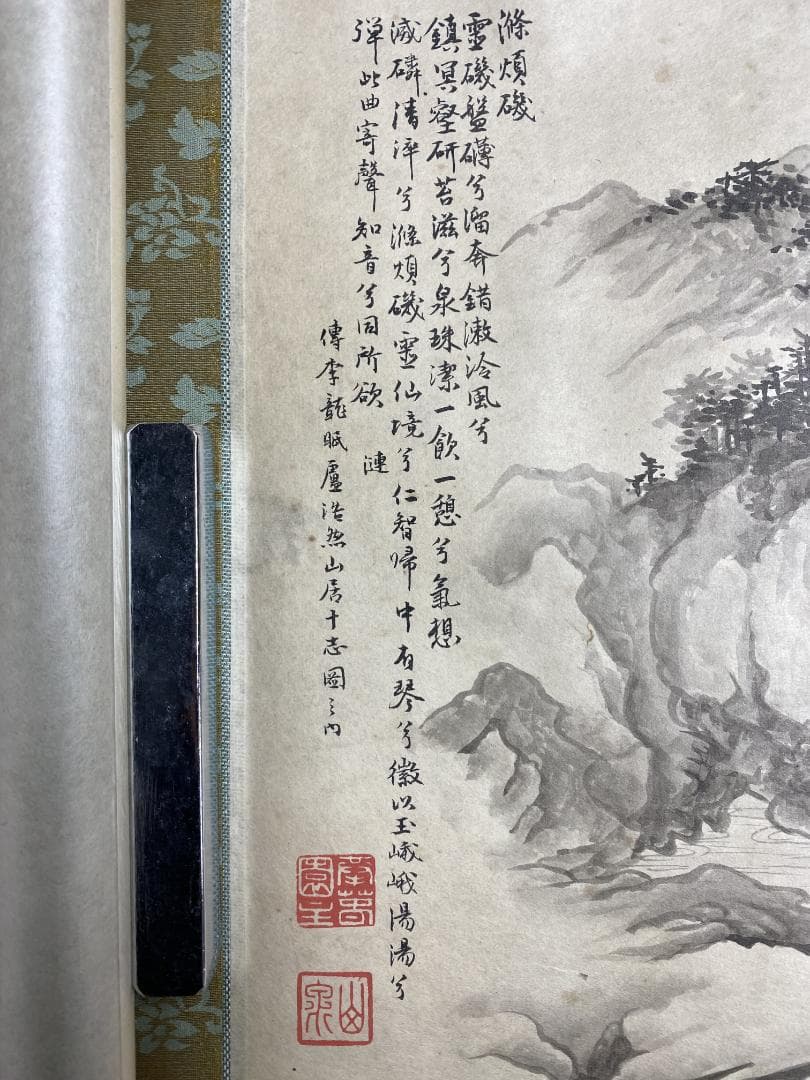 滌煩磯
靈磯盤礴兮溜奔錯漱泠風兮
鎮冥壑研苔滋兮泉珠潔一飲一憩兮氣想
滅磷清淬兮滌煩磯靈仙境兮仁智歸中有琴兮徽以玉峨峨湯湯兮
弾此曲寄聲知音兮同所欲
漣
傳李龍眠盧浩然山居十志圖之内